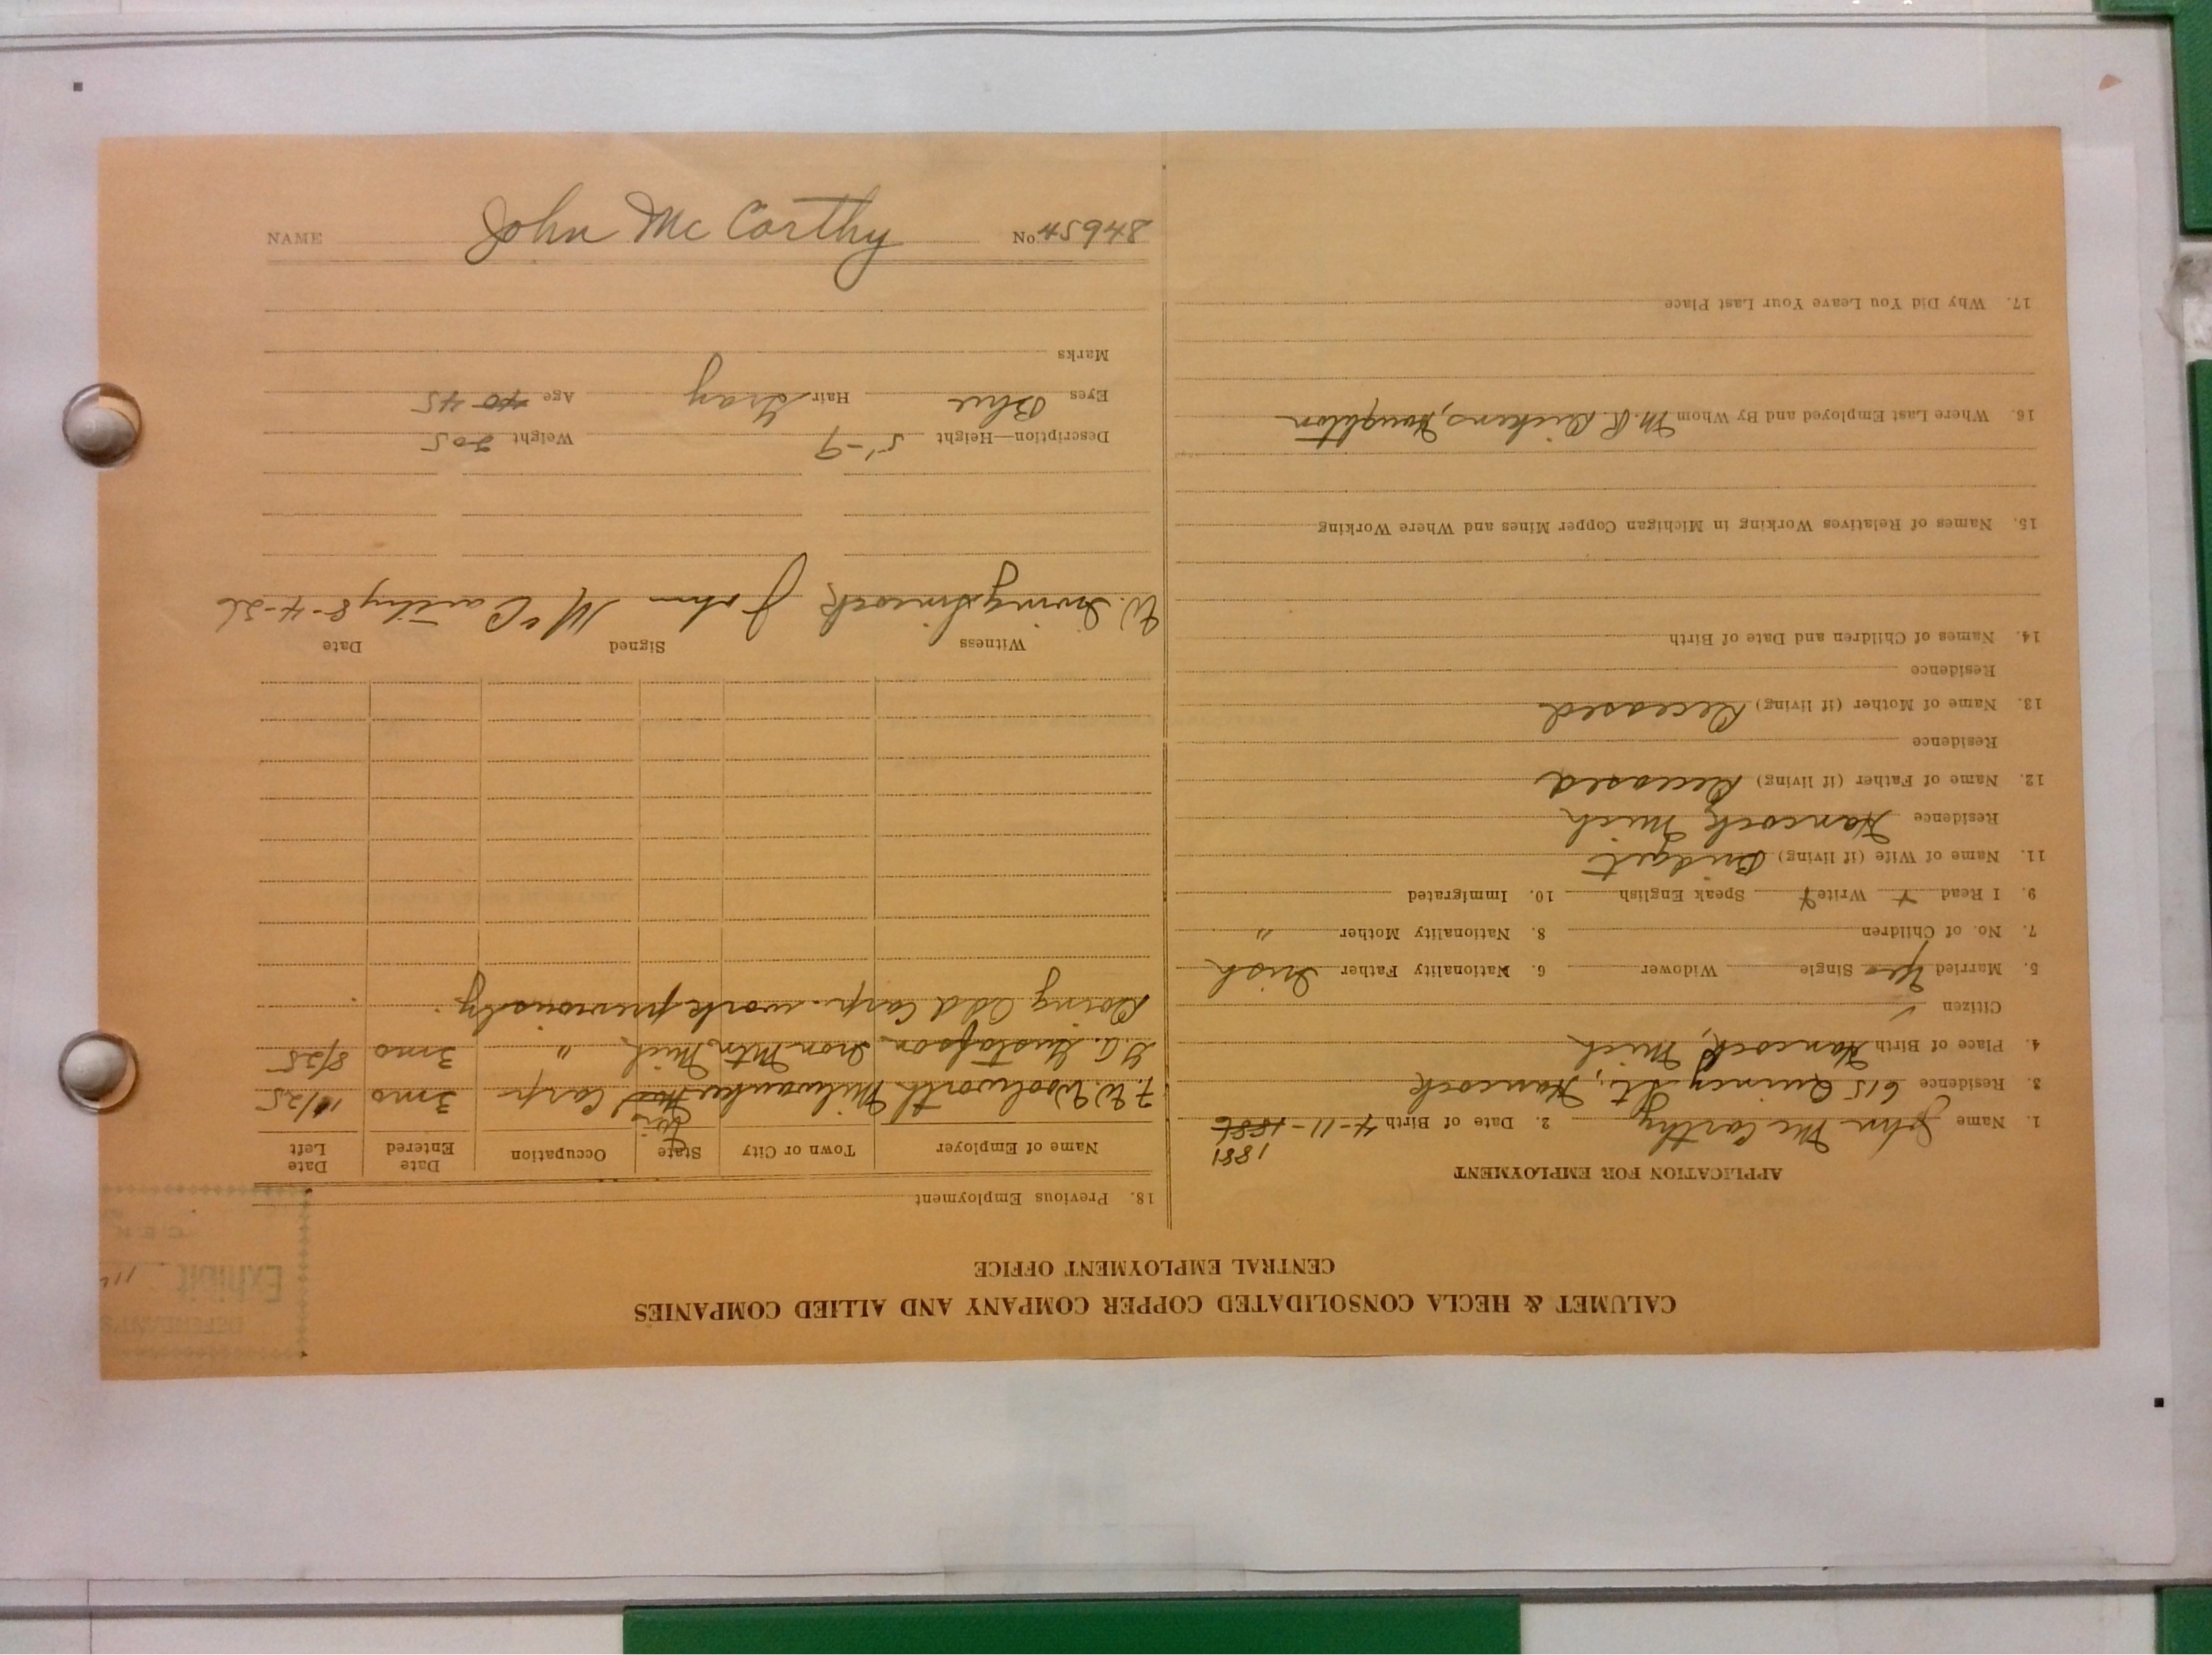 CALUMET & HECLA CONSOLIDATED COPPER COMPANY AND ALLIED COMPANIES
CENTRAL EMPLOYMENT OFFICE
APPLICATION FOR EMPLOYMENT
1881
1. Name John McCarthy 2. Date of Birth 4-11-1886
3. Residence 615 Quincy St., Hancock
4. Place of Birth Hancock, Mich
Citizen ✓
5. Married Yes Single Widower 6. Nationality Father Irish
7. No. of Children 8. Nationality Mother "
9. I Read Y Write Y Speak English 10. Immigrated
11. Name of Wife (if living) Bridget
Residence Hancock, Mich
12. Name of Father (if living) Deceased
Residence
13. Name of Mother (if living) Deceased
Residence
14. Names of Children and Date of Birth
15. Names of Relatives Working in Michigan Copper Mines and Where Working
16. Where Last Employed and By Whom M.R. Dickens, Houghton
17. Why Did You Leave Your Last Place
DEFENDANT'S
Exhibit
18. Previous Employment
Name of Employer Town or City State Occupation Date Entered Date Left
Wis
F.W. Woolworth Milwaukee Carp 3 mo 11/25
G.A. Gustafson Iron Mtn, Mich " 3 mo 8/25
Doing odd Carp. work previously.
Witness Signed Date
W. Irving Simcock John McCarthy 8-4-26
Description—Height 5'-9 Weight 205
Eyes Blue Hair Gray Age 40 45
Marks
NAME John McCarthy No. 45948